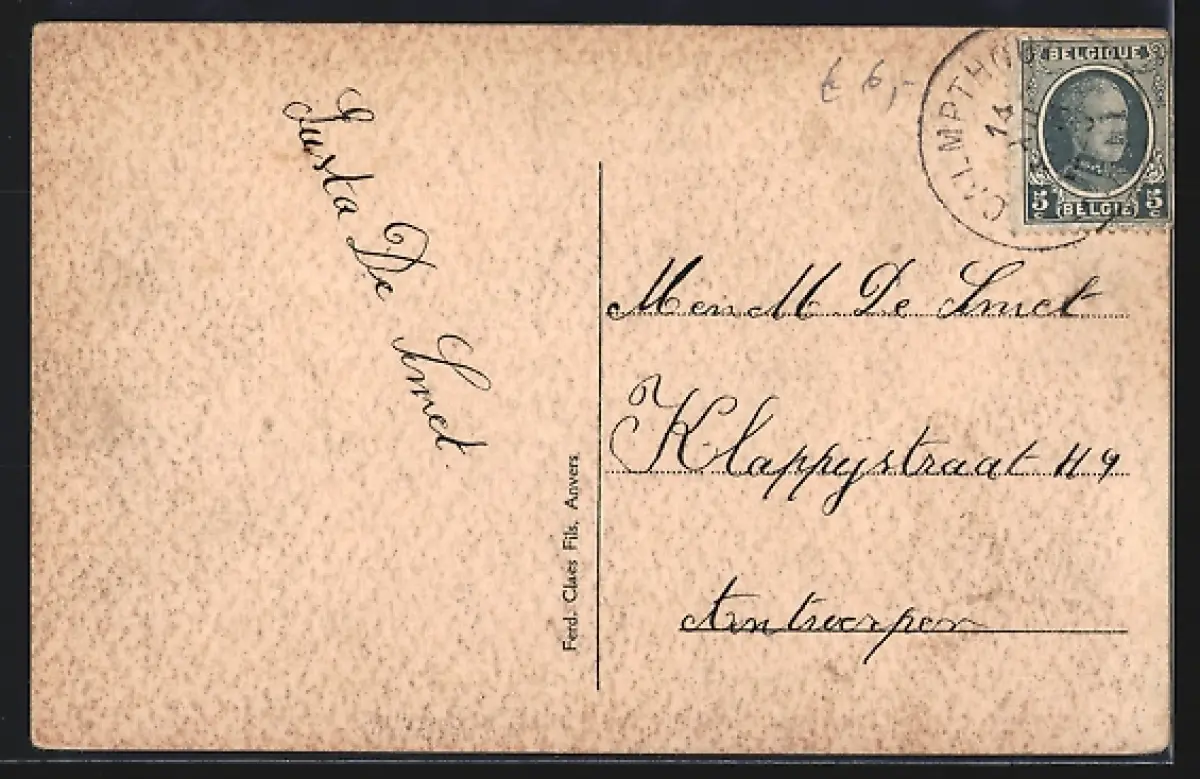 Gusta De Smet
Ferd. Claes Fils, Anvers
€ 6,-
CALMPTHO
14
BELGIQUE
5 BELGIË 5
M en M De Smet
Klappijstraat 119
Antwerpen